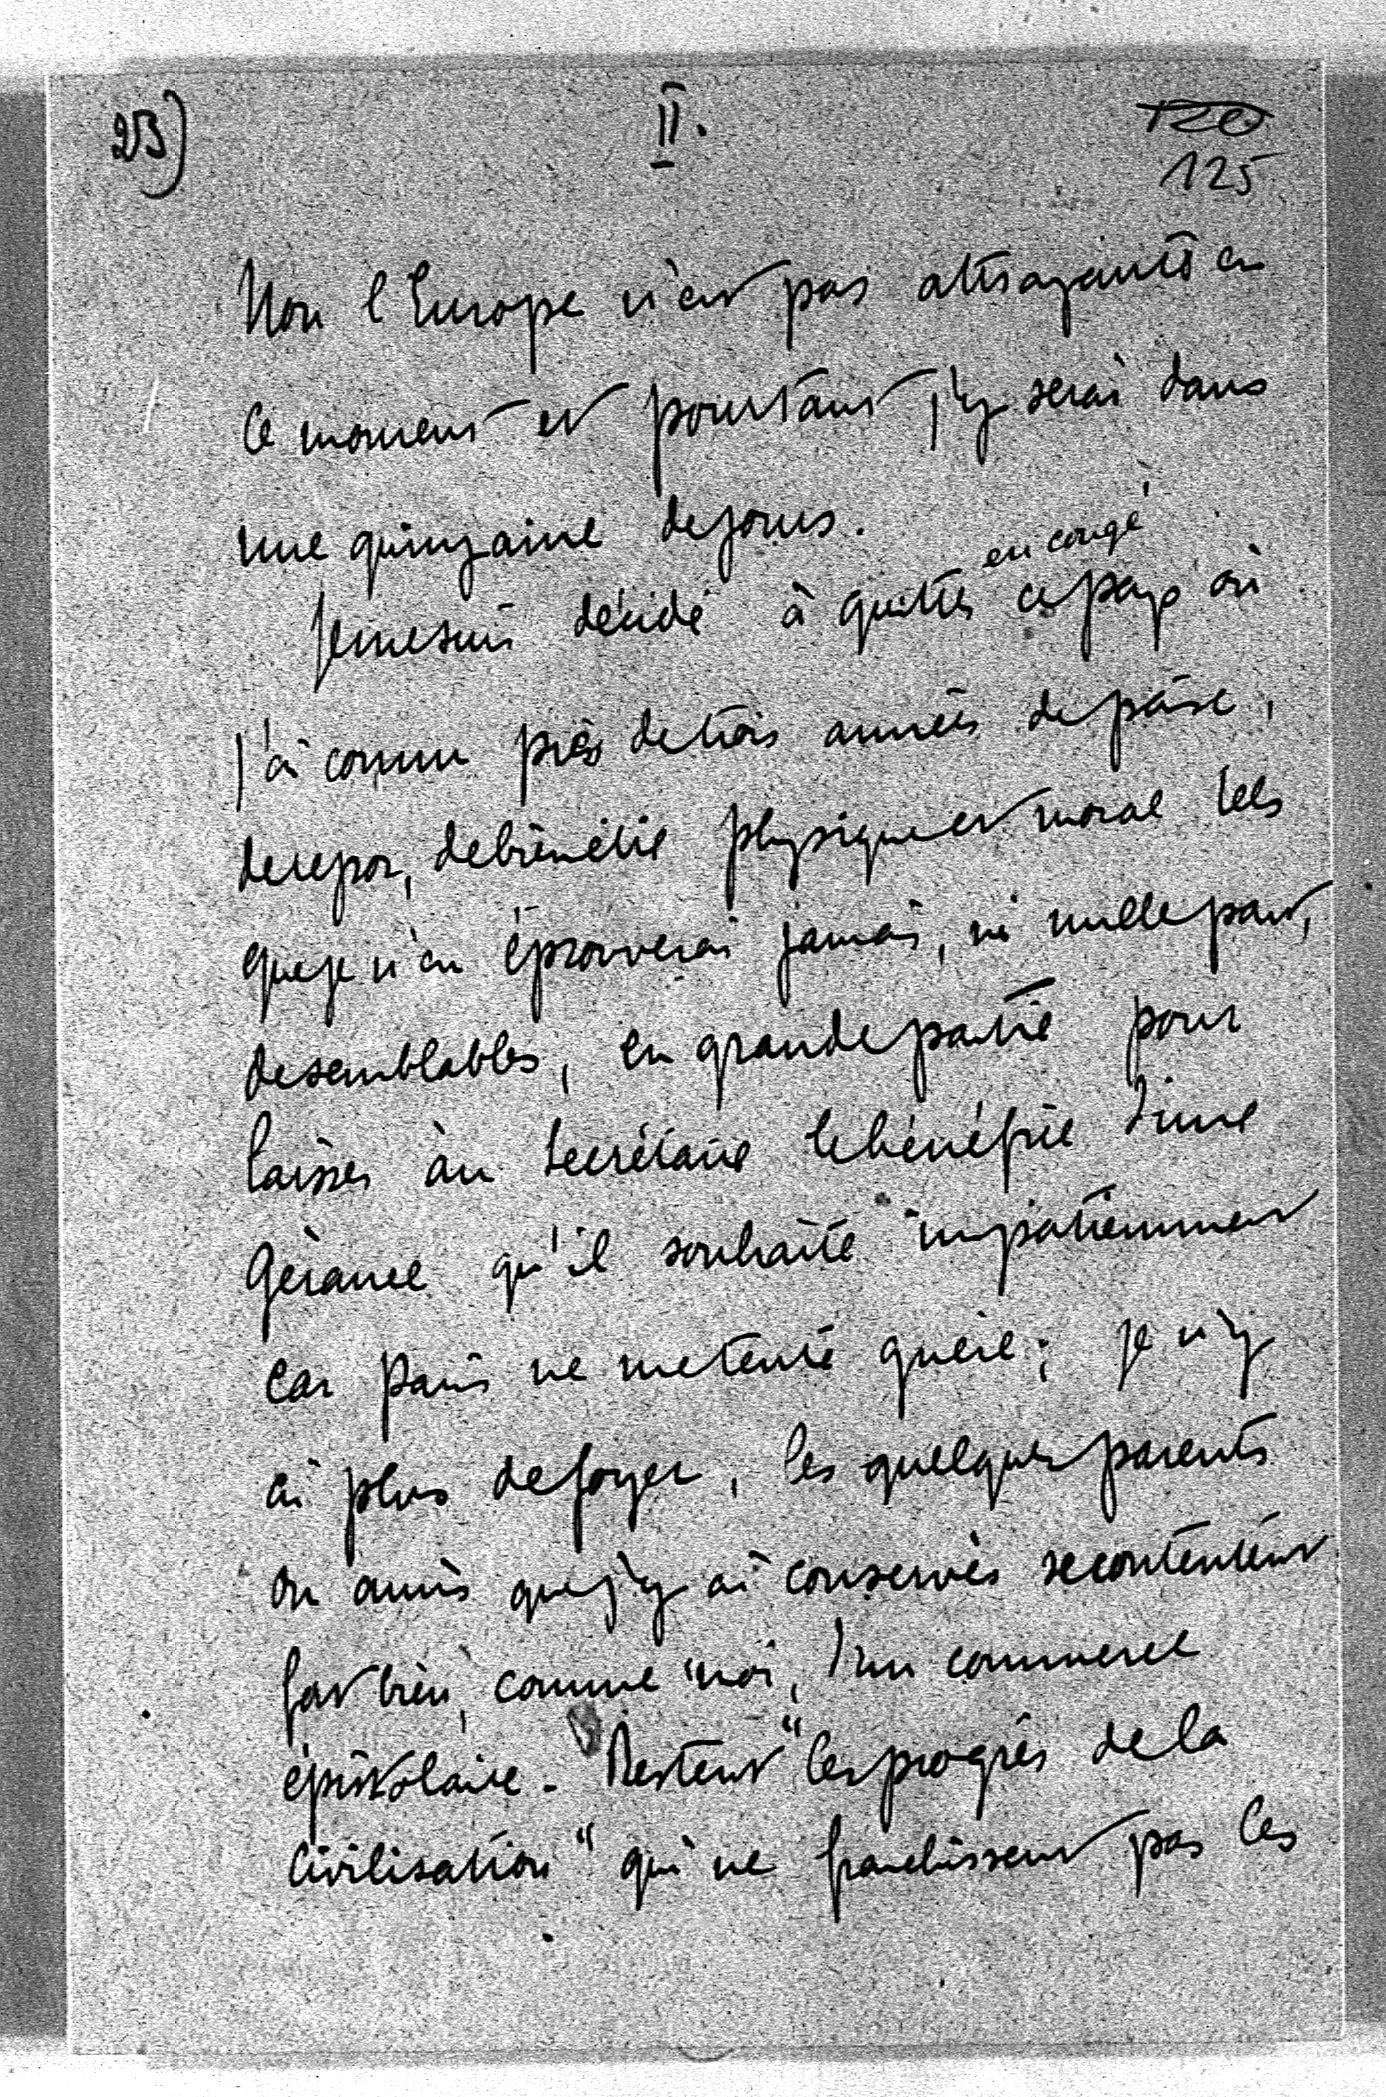 23)
II.
120
125
Non l'Europe n'est pas attrayante en
ce moment et pourtant j'y serai dans
une quinzaine de jours.
en congé
Je me suis décidé à quitter ce pays où
j'ai connu près de trois années de paix,
de repos, de bien être physique et moral tels
que je n'en éprouverai jamais, ni nulle part,
de semblables, en grande partie pour
laisser au Secrétaire le bénéfice d'une
Gérance qu'il souhaite impatiemment
car Paris ne me tente guère ; je n'y
ai plus de foyer, les quelques parents
ou amis que j'y ai conservés se contentent
fort bien, comme moi, d'un commerce
épistolaire. Restent "les progrès de la
civilisation" qui ne franchissent pas les